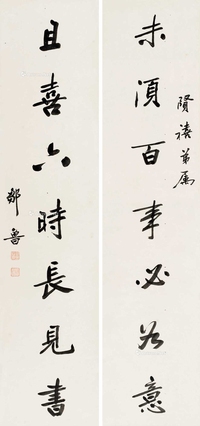 賢禧弟属
未須百事必如意
且喜六時長見書
鄒魯